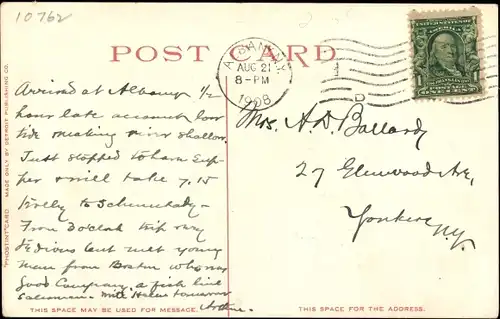 10762
POST CARD
ALBANY, N.Y.
AUG 21
8-PM
1908
UNITED STATES OF AMERICA
ONE CENT
"PHOSTINT" CARD MADE ONLY BY DETROIT PUBLISHING CO.
Arrived at Albany 1/2
hour late account low
tide making river shallow.
Just stopped to have sup-
per & will take 7.15
trolly to Schenectady -
From 5 oclock trip very
tedious but met young
man from Boston who was
good Company, a fish line
salesman. Will Helen tomorrow
Mrs. A. D. Ballard
27 Glenwood Ave,
Yonkers
N.Y.
THIS SPACE MAY BE USED FOR MESSAGE.
THIS SPACE IS FOR THE ADDRESS.